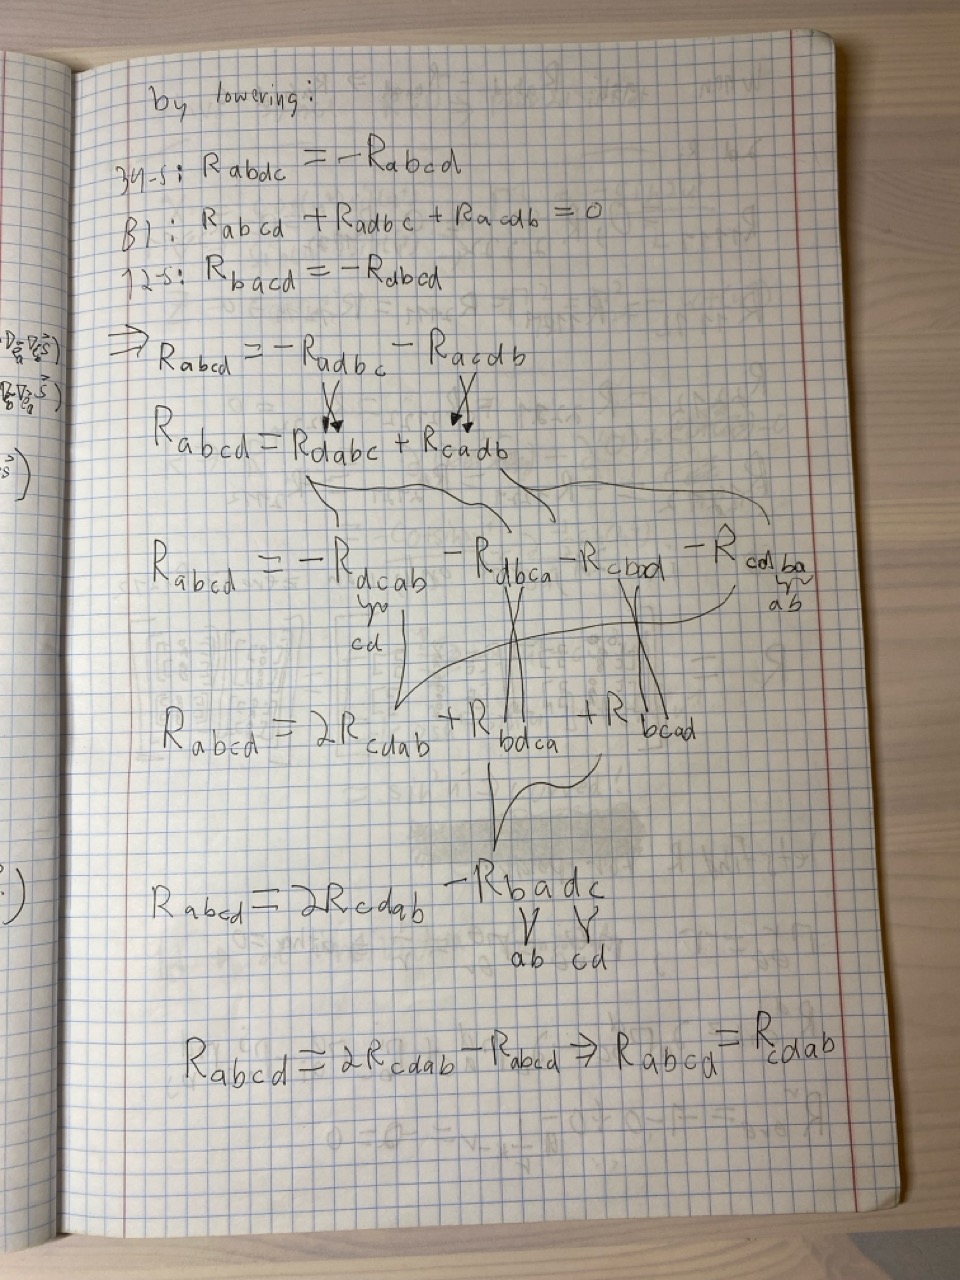 by lowering:
34-s: Rabdc = -Rabcd
B1: Rabcd + Radbc + Racdb = 0
12-s: Rbacd = -Rabcd
⇒ Rabcd = -Radbc - Racdb
Rabcd = Rdabc + Rcadb
Rabcd = -Rdcab -Rdbca -Rcbad -Rcdba
cd ab
Rabcd = 2Rcdab +Rbdca +Rbcad
Rabcd = 2Rcdab -Rbadc
ab cd
Rabcd = 2Rcdab -Rabcd ⇒ Rabcd = Rcdab